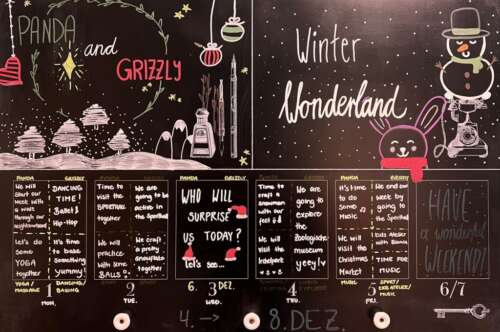 PANDA
and
GRIZZLY
Winter
Wonderland
PANDA
GRIZZLY
We will
start our
week with
a walk
through our
neighbourhood
Let's do
some
YOGA
together
YOGA/
MASSAGE
DANCING
TIME!
Ballet &
Hip-Hop
It's time
to bake
something
yummy!
DANCING/
BAKING
1
MON.
Time to
visit the
together
We will
practice
with some
BALLS
We are
going to
exercise
in the
Sporthall
We
craft a
pretty
snowflake
together
2
TUE.
PANDA
GRIZZLY
WHO WILL
SURPRISE
US TODAY?
Let's see...
6.
3
DEZ.
WED.
Time to
craft a
snowman
with our
feet
We will
visit the
together
We are
going to
explore
the
Zoologische
museum
yeey!
4
THU.
PANDA
GRIZZLY
It's time
to do
some
MUSIC
We will
visit the
Christmas
Market
MUSIC
We end our
week by
going to
the Sporthall
with
TIME FOR
MUSIC
SPORT/
MUSIC
5
FRI.
HAVE
a wonderful
WEEKEND!
6/7
4. → 8. DEZ